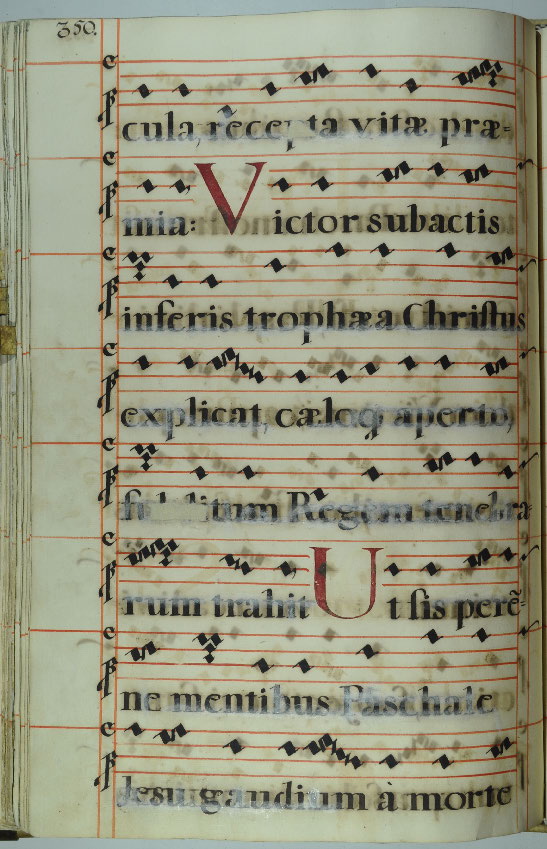 350.
cula, recepta vitæ præ-
mia: Victor subactis
inferis trophæa Christus
explicat, cæloq aperto,
Regem tenebra-
rum trahit Ut sis perẽ-
ne mentibus Paschale
Jesu gaudium à morte